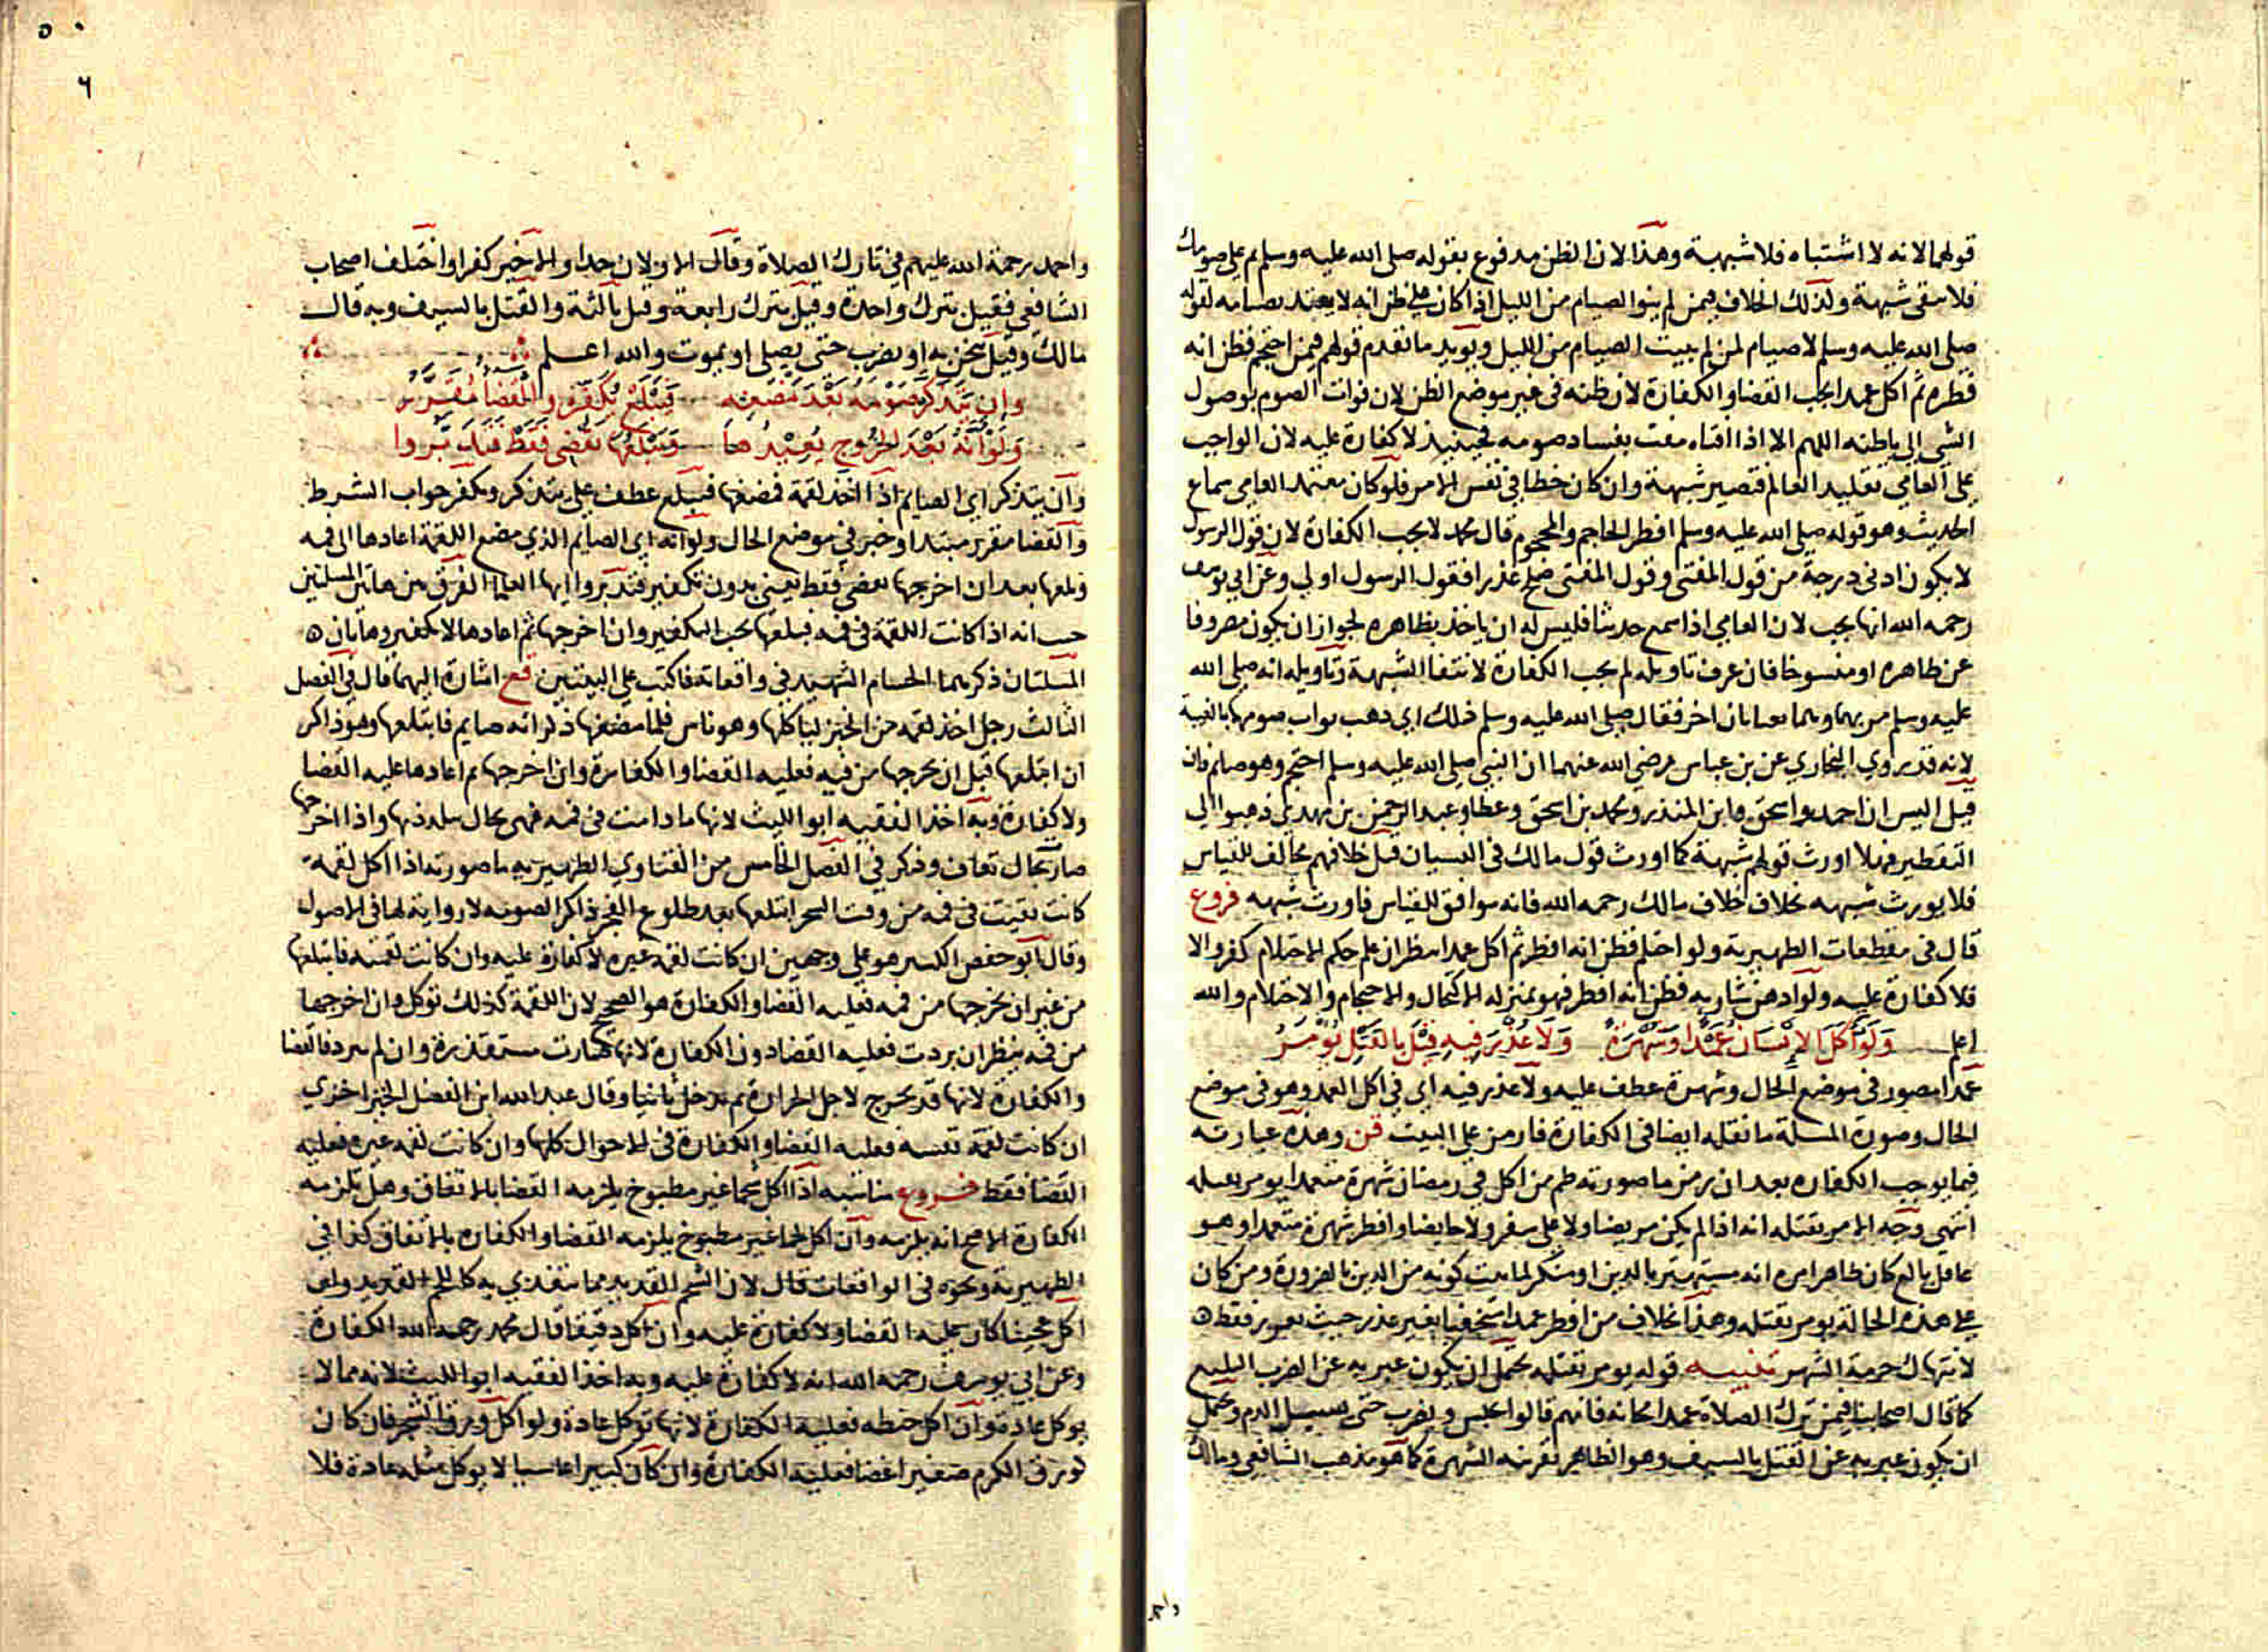 قولهما لانه لا اشتباه فلا شبهة وهذا لان الظن مدفوع بقوله صلى الله عليه وسلم تم على صومك
فلا تبقى شبهة ولذلك الخلاف فيمن لم ينو الصيام من الليل اذا كان على ظن انه لا يعتد بصيامه لقوله
صلى الله عليه وسلم لا صيام لمن لم يبيت الصيام من الليل ويويد ما تقدم قولهم فيمن احتجم فظن انه
فطره ثم اكل عمدا يجب القضا والكفارة لان ظنه في غير موضع الظن لان فوات الصوم بوصول
الشي الى باطنه اللهم الا اذا افتاه مفت بفساد صومه فحينيذ لا كفارة عليه لان الواجب
على العامي تقليد العالم فتصير شبهة وان كان خطا في نفس الامر فلو كان معتمد العامي سماع
الحديث وهو قوله صلى الله عليه وسلم افطر الحاجم والمحجوم قال محمد لا يجب الكفارة لان قول الرسول
لا يكون ادنى درجة من قول المفتي وقول المفتي صلح عذرا فقول الرسول اولى وعن ابي يوسف
رحمه الله انها يجب لان العامي اذا سمع حديثا فليس له ان ياخذ بظاهره لجواز ان يكون مصروفا
عن ظاهره او منسوخا فان عرف تاويله لم يجب الكفارة لانتفا الشبهة وتاويله انه صلى الله
عليه وسلم مر بهما وهما يغتابان اخر فقال صلى الله عليه وسلم ذلك اي ذهب ثواب صومهما بالغيبة
لانه قد روي البخاري عن بن عباس رضي الله عنهما ان النبي صلى الله عليه وسلم احتجم وهو صايم فان
قيل اليس ان احمد واسحق وابن المنذر ومحمد بن اسحق وعطا وعبد الرحمن بن مهدي ذهبوا الى
التفطير فهلا اورث قولهم شبهة كما اورث قول مالك في النسيان قيل خلافهم مخالف للقياس
فلا يورث شبهه بخلاف خلاف مالك رحمه الله فانه موافق للقياس فاورث شبهه فروع
قال في مقطعات الظهيرية ولو احتلم فظن انه افطر ثم اكل عمدا ينظر ان علم حكم الاحتلام كفر والا
فلا كفارة عليه ولو ادهن شاربه فظن انه افطر فهو بمنزلة الاكتحال والاحتجام والاحتلام والله
اعلم ولو اكل الانسان عمدا وشهرة ولا عذر فيه قيل بالقتل يومر
عمدا مصدر في موضع الحال وشهرة عطف عليه ولا عذر فيه اي في اكل العمد وهو في موضع
الحال وصورة المسلة ما نقله ايضا في الكفارة فارمز على البيت قن وهذه عبارته
فيما يوجب الكفاره بعد ان رمز ما صورته طم من اكل في رمضان شهرة متعمدا يومر بقتله
انتهى وجه الامر بقتله انه اذا لم يكن مريضا ولا على سفر ولا حايضا وافطر شهرة متعمدا وهو
عاقل بالغ كان ظاهرا من امره انه مستهتر بالدين او منكر لما ثبت كونه من الدين بالضرورة ومن كان
على هذه الحالة يومر بقتله وهذا بخلاف من افطر عمدا مستخفيا بغير عذر حيث يعزر فقط
لانتهاك حرمة الشهر تنبيه قوله يومر بقتله يحتمل ان يكون عبر به عن الضرب البليغ
كما قال اصحابنا فيمن ترك الصلاة عمدا مجانه فانهم قالوا يحبس ويضرب حتى يسيل الدم ويحتمل
ان يكون عبر به عن القتل بالسيف وهو الظاهر بقرينة الشهرة كما هو مذهب الشافعي ومالك
٦
واحمد رحمة الله عليهم في تارك الصلاة وقال الاولان حدا والاخير كفرا واختلف اصحاب
الشافعي فقيل بترك واحدة وقيل بترك رابعة وقيل ثالثة والقتل بالسيف وبه قال
مالك وقيل ينخس به او يضرب حتى يصلي او يموت والله اعلم
وان يتذكر صومه بعد مضغه فيبلع يكفر والقضا مقرر
ولو انه بعد الخروج يعيدها ويبلعها يقضي فقط فتدبروا
وان يتذكر اي الصايم اذا اخذ لقمة فمضغها فيبلع عطف على يتذكر ويكفر جواب الشرط
والقضا مقرر مبتدا وخبر في موضع الحال ولو انه اي الصايم الذي مضغ اللقمة اعادها الى فمه
وبلعها بعد ان اخرجها يقضي فقط يعني بدون تكفير فتدبروا ايها العلما الفرق بين هاتين المسلتين
حيث انه اذا كانت اللقمة في فمه فبلعها يجب التكفير وان اخرجها ثم اعادها لا يكفير وهاتان
المسلتان ذكرهما الحسام الشهيد في واقعاته فاكتب على البيتين قع اشارة اليهما قال في الفصل
الثالث رجل اخذ لقمه من الخبز لياكلها وهو ناس فلما مضغها ذكر انه صايم فابتلعها وهو ذاكر
ان ابتلعها قبل ان يخرجها من فيه فعليه القضا والكفارة وان اخرجها ثم اعادها عليه القضا
ولا كفارة وبه اخذ الفقيه ابو الليث لانها ما دامت في فمه فهي بحال يتلذذ بها واذا اخرجها
صار بحال تعاف وذكر في الفصل الخامس من الفتاوي الظهيرية ما صورته اذا اكل لقمة
كانت بقيت في فمه من وقت السحر ابتلعها بعد طلوع الفجر ذاكرا لصومه لا رواية لها في الاصول
وقال ابو حفص الكبير هو على وجهين ان كانت لقمة غيره لا كفارة عليه وان كانت لقمته فابتلعها
من غير ان يخرجها من فمه فعليه القضا والكفارة هو الصحيح لان اللقمة كذلك توكل وان اخرجها
من فمه ينظر ان بردت فعليه القضا دون الكفارة لانها صارت مستقذرة وان لم تبرد فالقضا
والكفارة لانها قد تخرج لاجل الحرارة ثم تدخل ثانيا وقال عبد الله ابن الفضل الخيزاخزي
ان كانت لقمة نفسه فعليه القضا والكفارة في الاحوال كلها وان كانت لقمة غيره فعليه
القضا فقط فروع مناسبه اذا اكل شحما غير مطبوخ يلزمه القضا بالاتفاق وهل تلزمه
الكفارة الاصح انه يلزمه وان اكل لحما غير مطبوخ يلزمه القضا والكفارة بالاتفاق كذا في
الظهيرية ونحوه في الواقعات قال لان الشحم القديد مما يتغذي به كاللحم القديد ولو
اكل عجينا كان عليه القضا ولا كفارة عليه وان اكل دقيقا قال محمد رحمه الله الكفارة
وعن ابي يوسف رحمه الله انه لا كفارة عليه وبه اخذ الفقيه ابو الليث لانه مما لا
يوكل عادة وان اكل حنطه فعليه الكفارة لانها توكل عادة ولو اكل ورق الشجر فان كان
كورق الكرم صغيرا غضا فعليه الكفارة وان كان كبيرا لا يوكل مثله عادة فلا